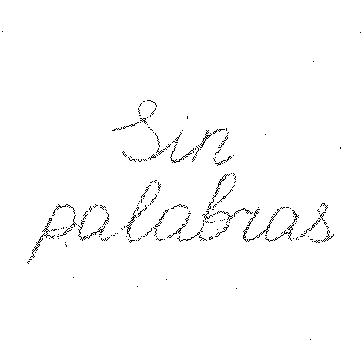 Sin
palabras